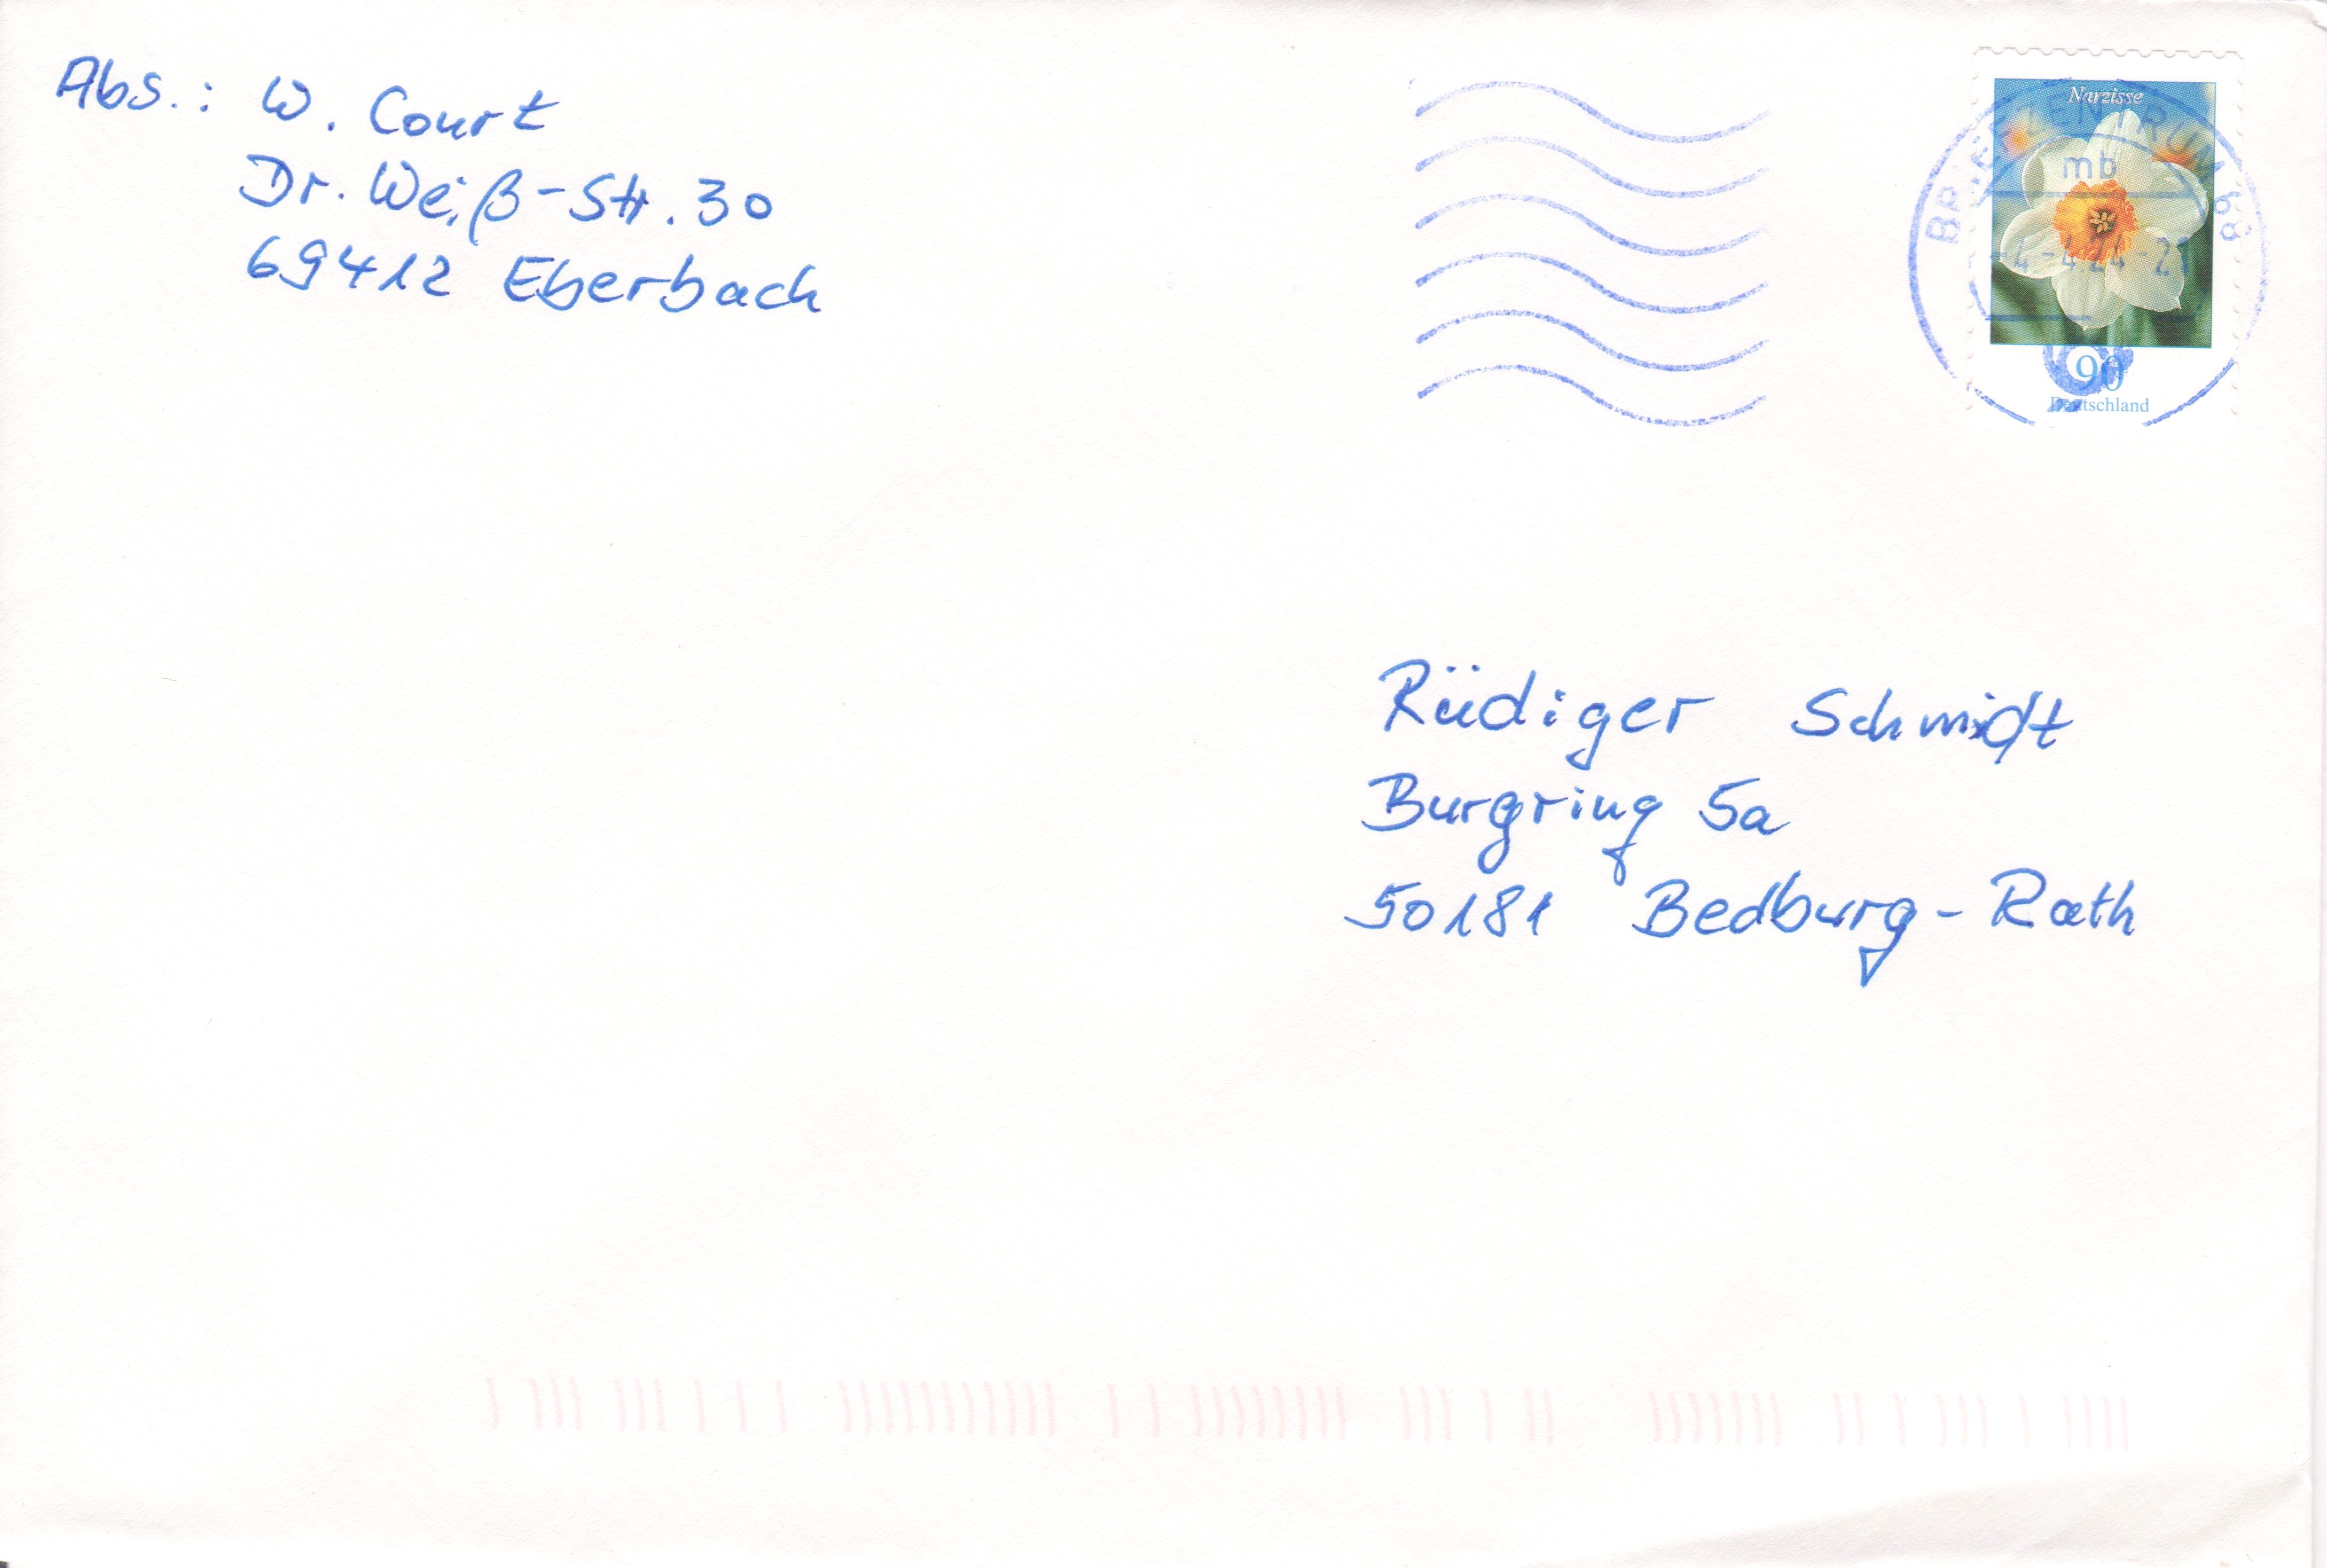 Abs.: W. Court
Dr. Weiß-Str. 30
69412 Eberbach
Narzisse
BRIEFZENTRUM 68
mb
-4.-4.24-21
90
Deutschland
Rüdiger Schmidt
Burgring 5a
50181 Bedburg-Rath